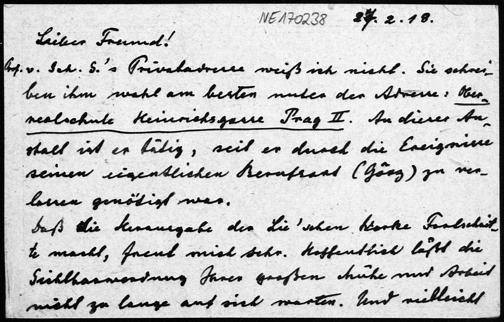 NE170238
27. 2. 18.
Lieber Freund!
Prof. v. Sch. G.'s Privatadresse weiß ich nicht. Sie schrei-
ben ihm wohl am besten unter der Adresse: Ober-
realschule Heinrichsgasse Prag II. An dieser An-
stalt ist er tätig, seit er durch die Ereignisse
seinen eigentlichen Berufsort (Görz) zu ver-
lassen genötigt war.
Daß die Herausgabe der Lie'schen Werke Fortschrit-
te macht, freut mich sehr. Hoffentlich läßt die
Sichtbarwerdung Ihrer großen Mühe und Arbeit
nicht zu lange auf sich warten. Und vielleicht